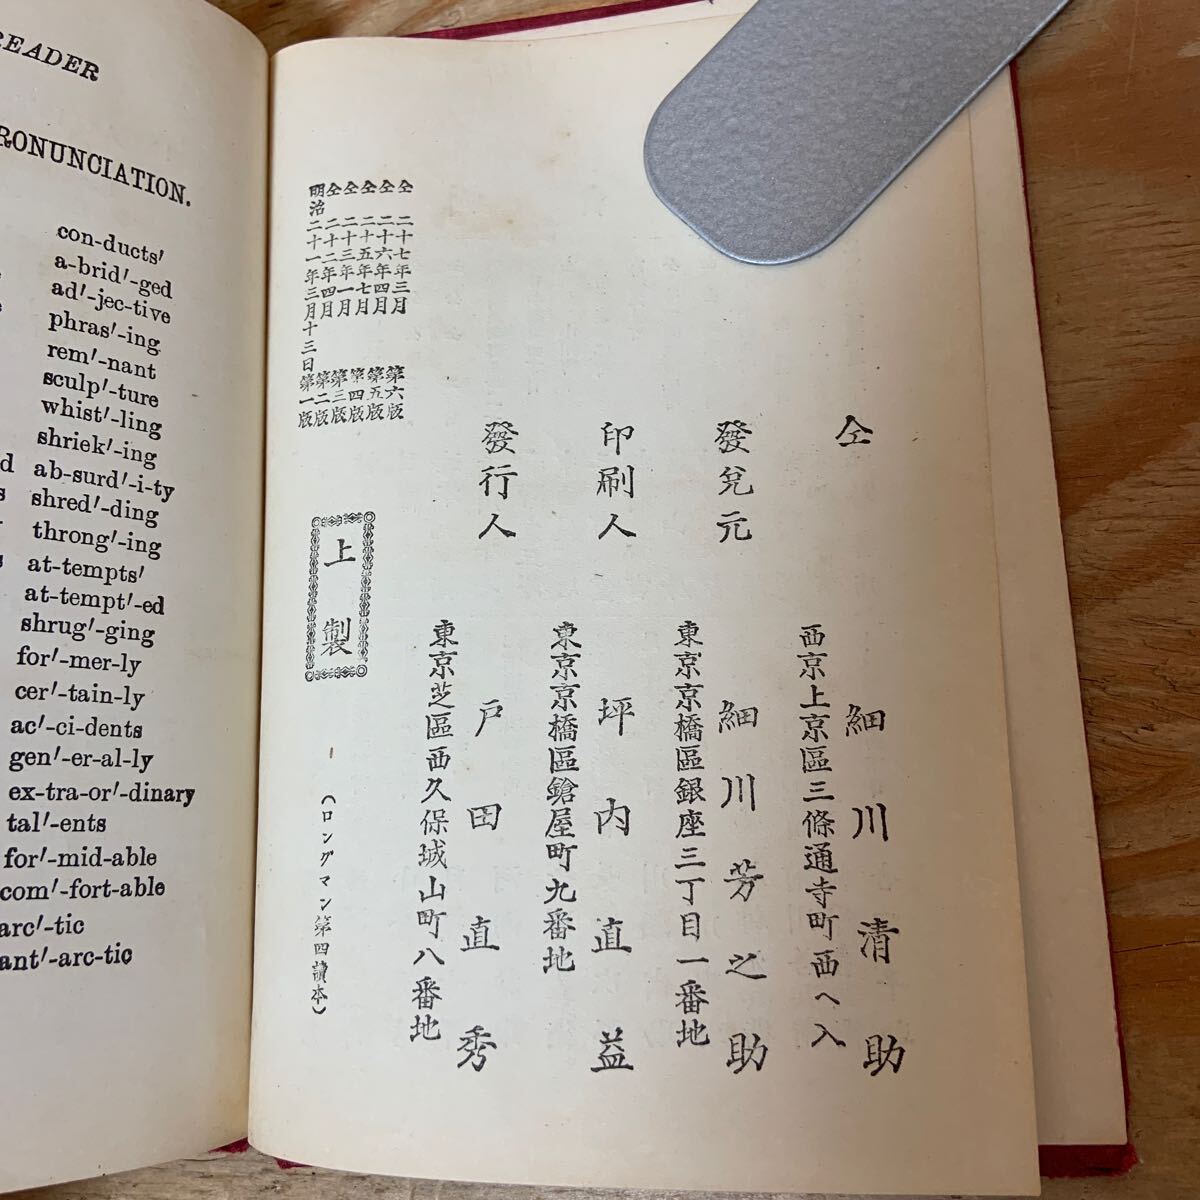 READER
RONUNCIATION.
con-ducts′
a-brid′-ged
ad′-jec-tive
phras′-ing
rem′-nant
sculp′-ture
whist′-ling
shriek′-ing
ab-surd′-i-ty
shred′-ding
throng′-ing
at-tempts′
at-tempt′-ed
shrug′-ging
for′-mer-ly
cer′-tain-ly
ac′-ci-dents
gen′-er-al-ly
ex-tra-or′-dinary
tal′-ents
for′-mid-able
com′-fort-able
arc′-tic
ant′-arc-tic
仝
西京上京區三條通寺町西ヘ入
細川清助
發兌元
東京京橋區銀座三丁目一番地
細川芳之助
印刷人
東京京橋區鎗屋町九番地
坪内直益
發行人
東京芝區西久保城山町八番地
戸田直秀
仝 二十七年三月 第六版
仝 二十六年四月 第五版
仝 二十五年七月 第四版
仝 二十三年一月 第三版
仝 二十二年四月 第二版
明治二十一年三月十三日 第一版
上製
(ロングマン第四讀本)